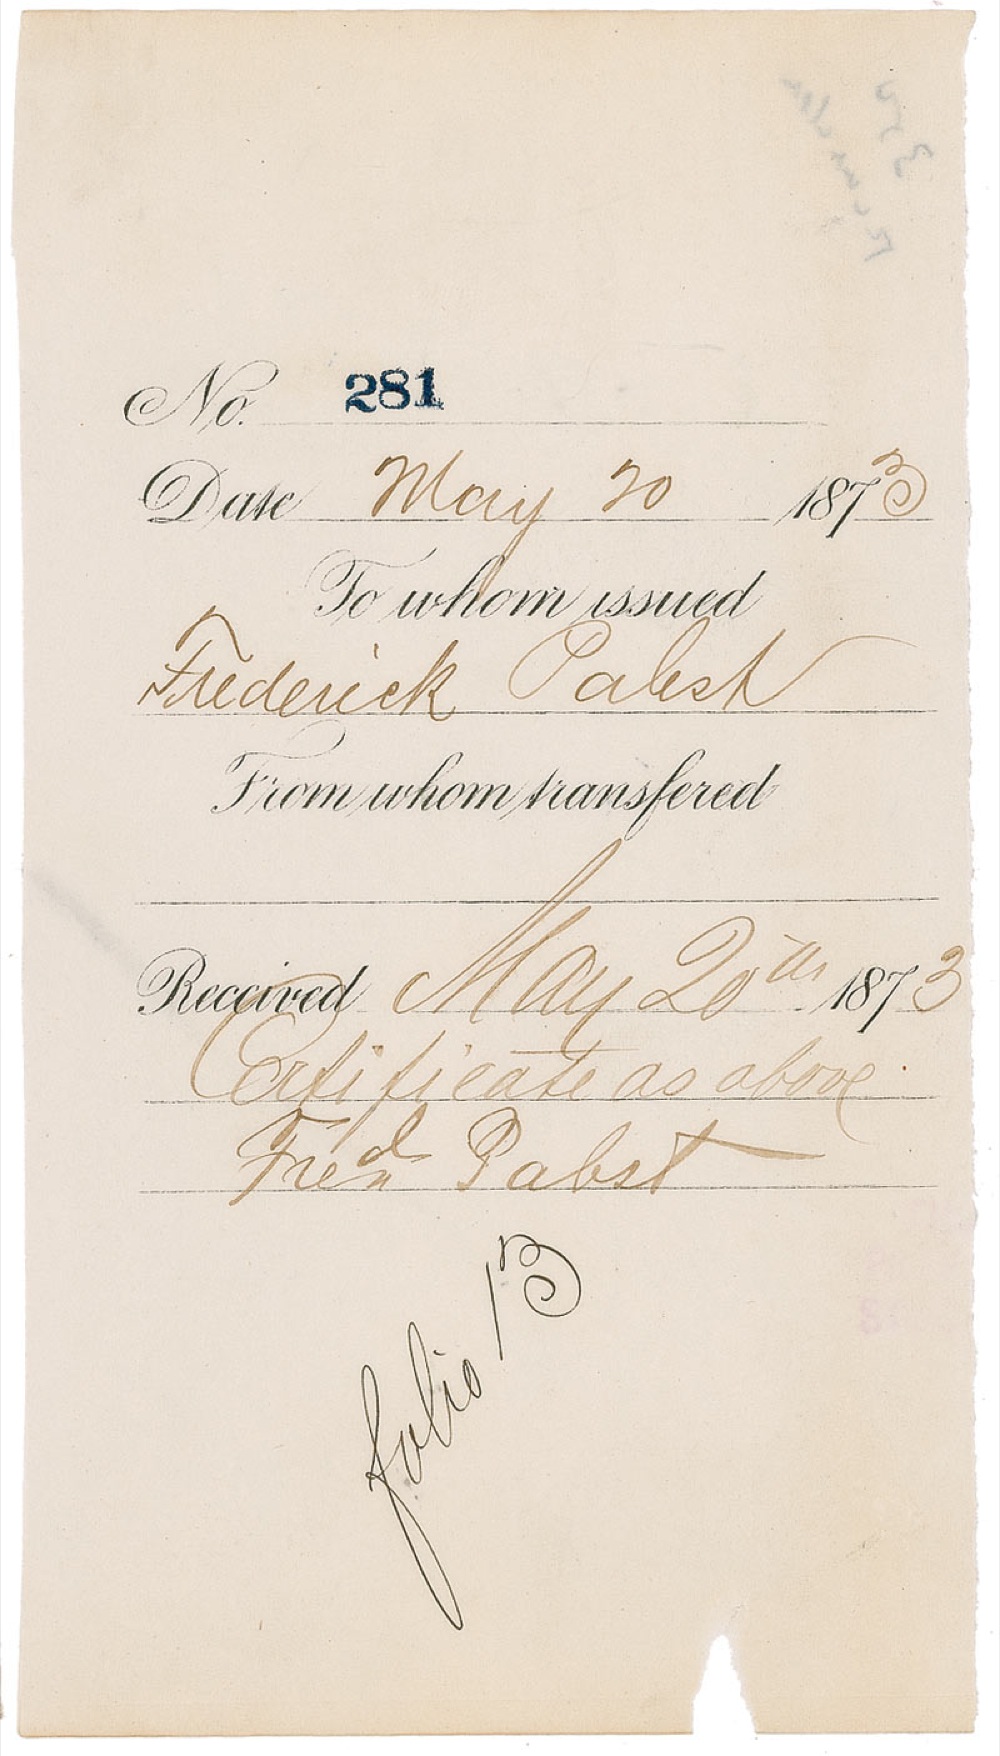 No. 281
Date May 20 1873
To whom issued
Frederick Pabst
From whom transfered
Received May 20th 1873
Certificate as above
Fred Pabst
folio 13